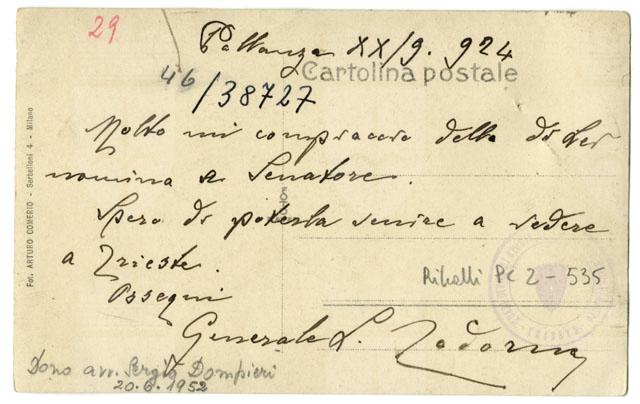 29
Pallanza XX/9. 924
Cartolina postale
46/38727
Molto mi compiaccio della di Lei
nomina a Senatore.
Spero di poterla venire a vedere
a Trieste.
Ossequi
Generale L. Cadorna
Ribalti Pc 2-535
Dono avv. Sergio Dompieri
20.6.1952
Fot. ARTURO COMERIO - Serbelloni 4 - Milano